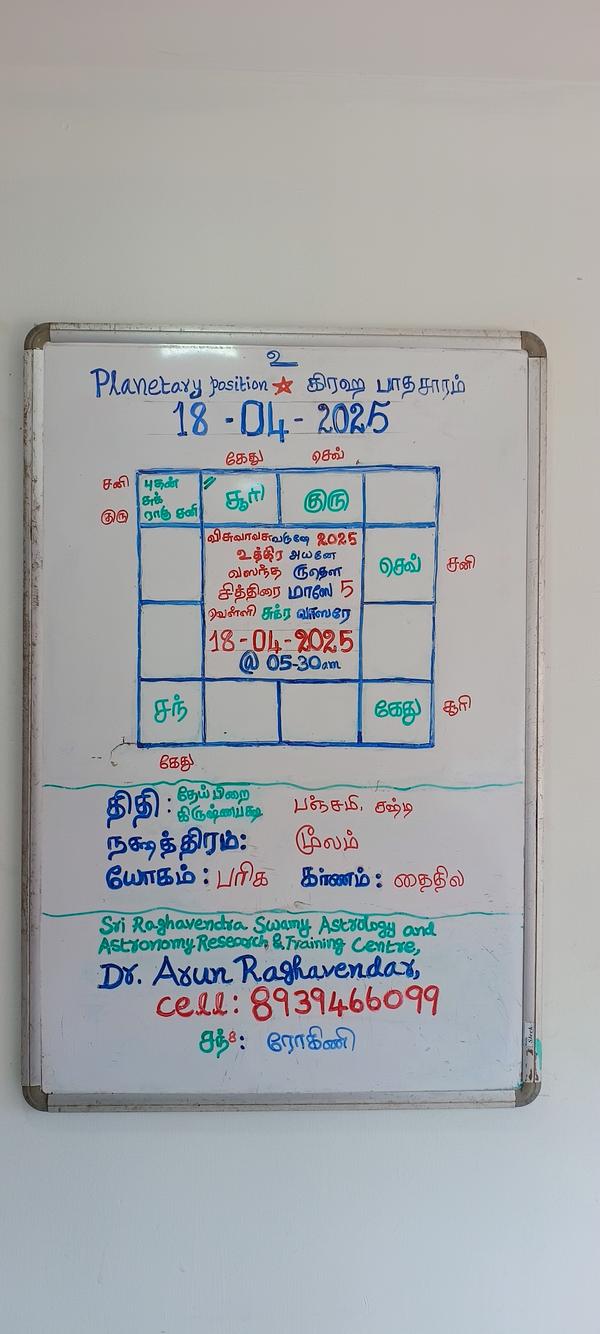 உ
Planetary position ☆ கிரஹ பாதசாரம்
18-04-2025
கேது செவ்
சனி
குரு
புதன்
சுக்
ராகு சனி
சூரி
குரு
விசுவாவசுவருஷே 2025
உத்திர அயனே
வஸந்த ருதௌ
சித்திரை மாஸே 5
வெள்ளி சுக்ர வாஸரே
18-04-2025
@ 05-30am
செவ்
சனி
சந்
கேது
சூரி
கேது
திதி : தேய்பிறை
கிருஷ்ணபக்ஷ
பஞ்சமி, சஷ்டி
நக்ஷத்திரம்: மூலம்
யோகம் : பரிக கர்ணம் : தைதில
Sri Raghavendra Swamy Astrology and
Astronomy Research & Training Centre,
Dr. Arun Raghavendar,
cell: 8939466099
சந்8: ரோகிணி